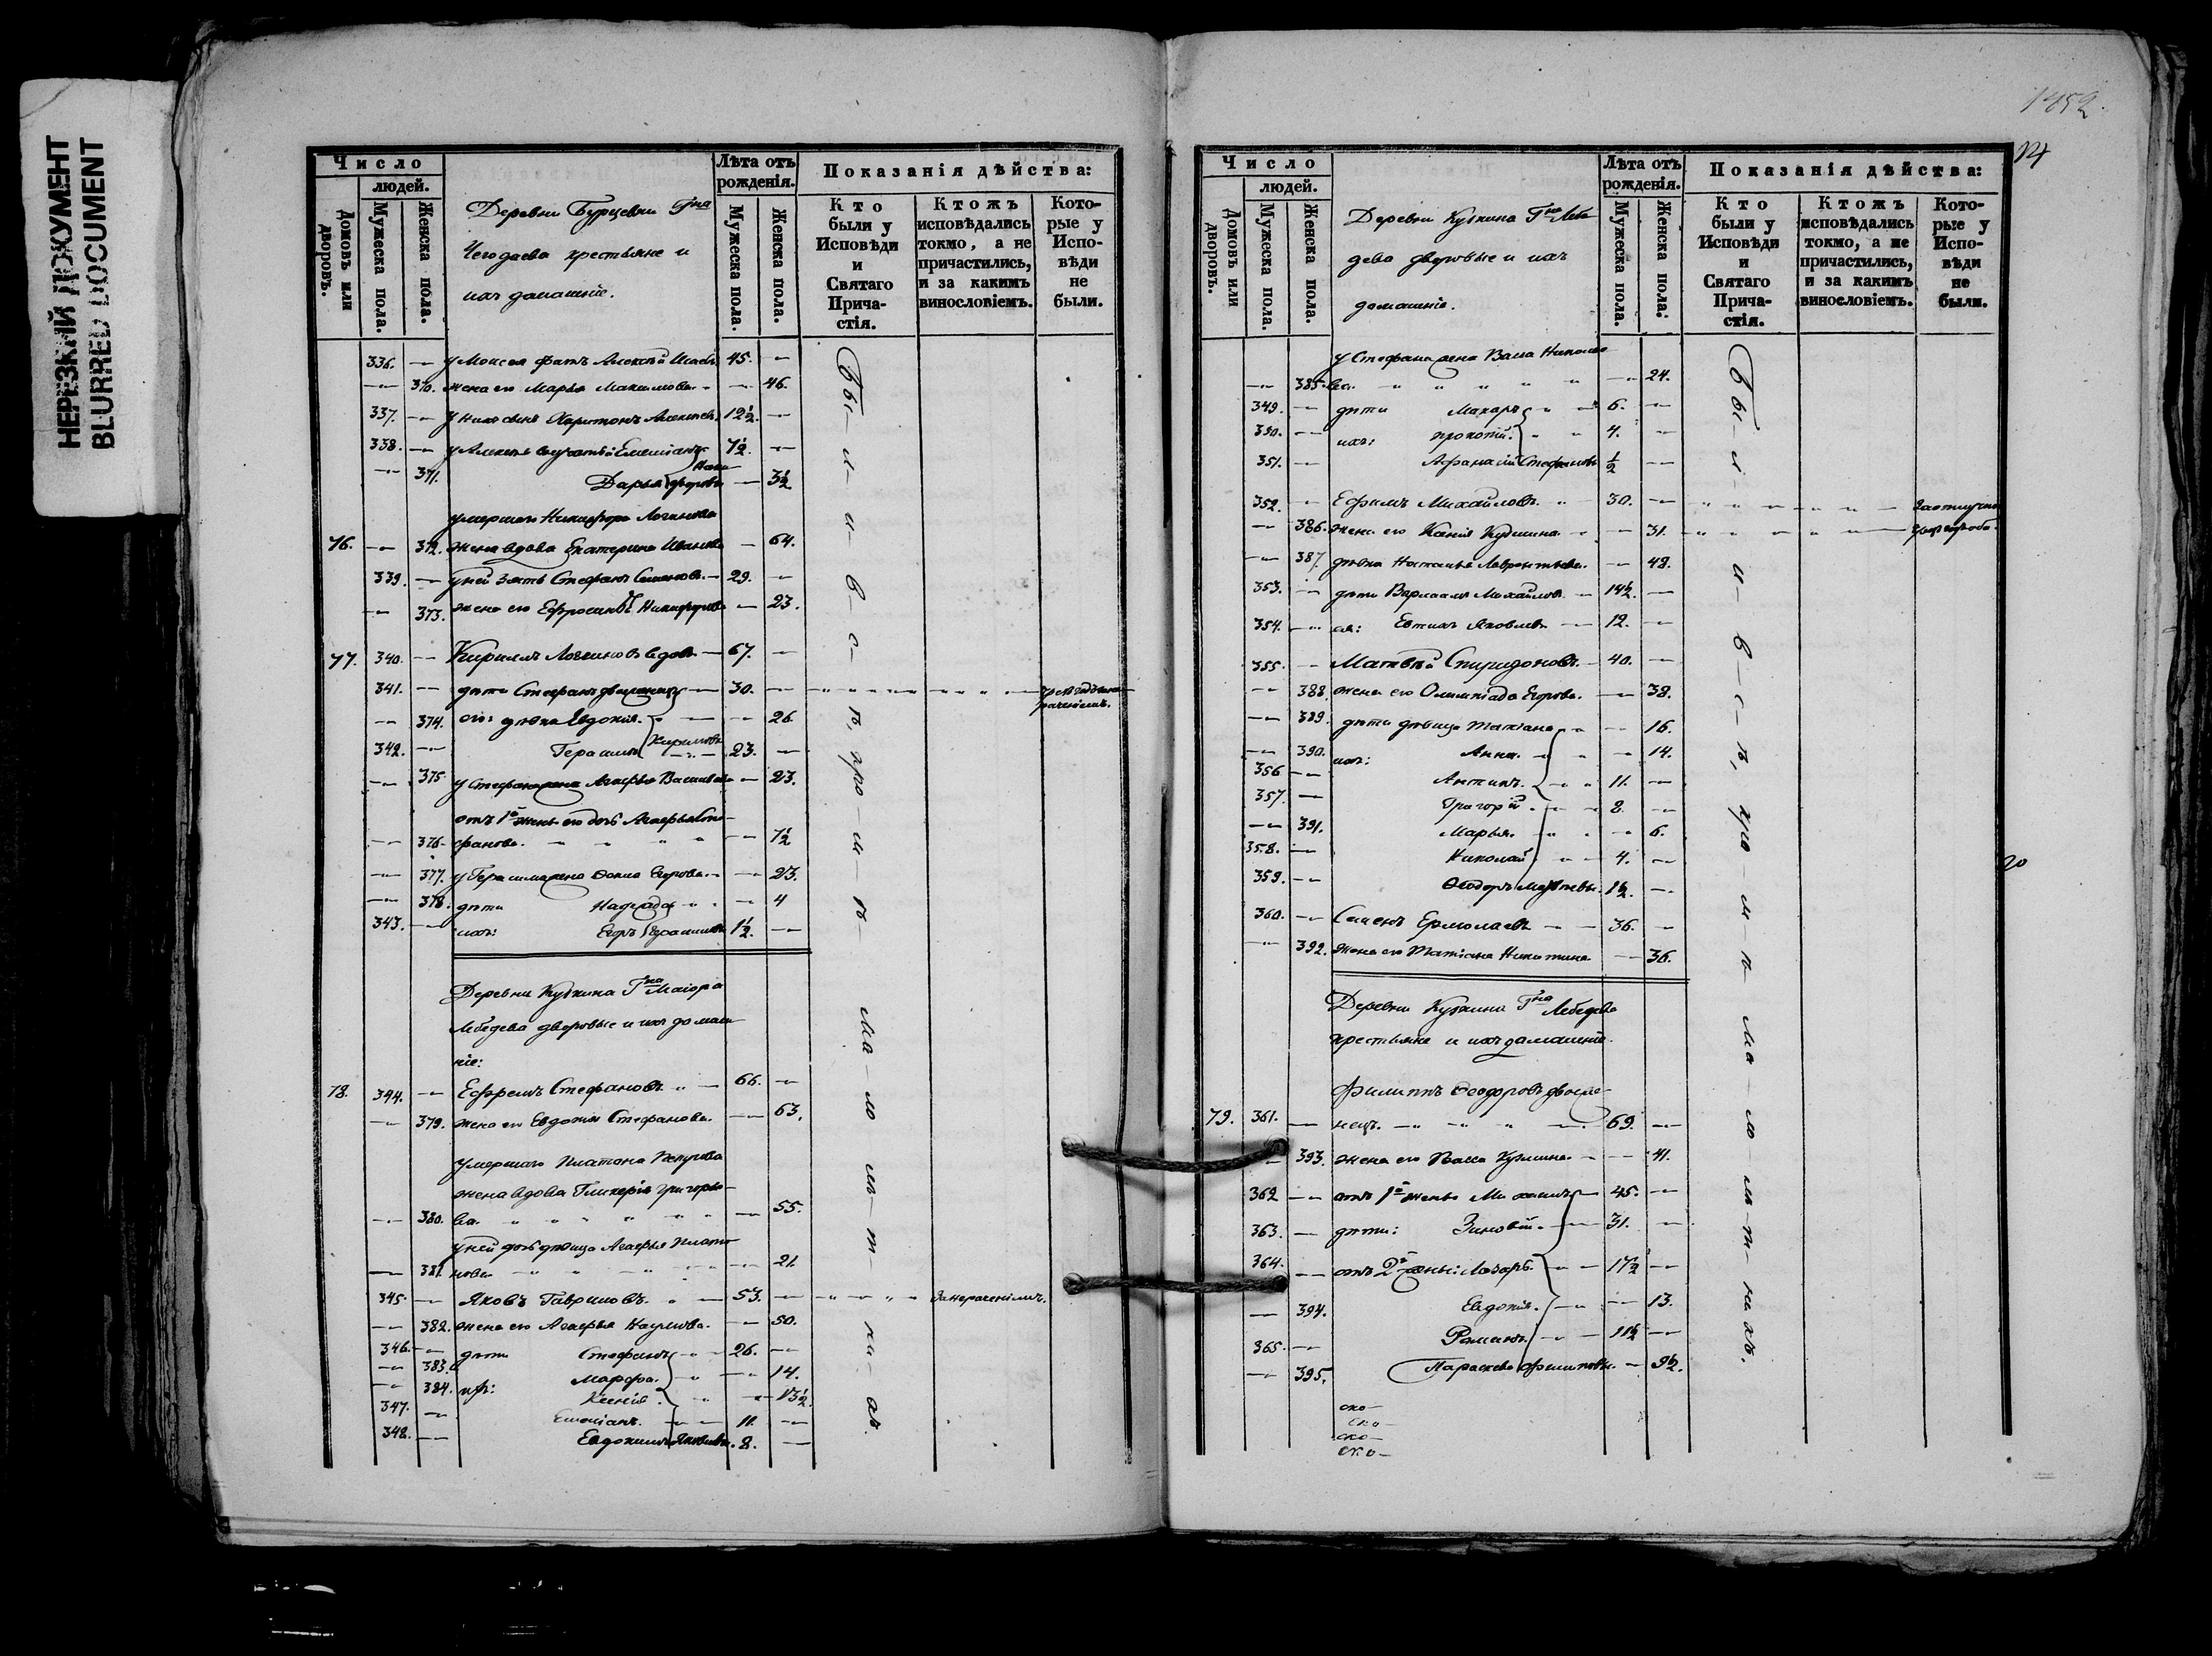 НЕРЕЗКИЙ ДОКУМЕНТ
BLURRED DOCUMENT
Число
людей.
Домовъ или дворовъ.
Мужеска пола.
Женска пола.
Деревни Бурцевки Гна
Чегодаева крестьяне и
ихъ домашніе.
Лѣта отъ рожденія.
Мужеска пола.
Женска пола.
Показанія дѣйства:
Кто были у Исповѣди и Святаго Прича-стія.
Ктожъ исповѣдались токмо, а не причастились, и за какимъ винословіемъ.
Кото-рые у Испо-вѣди не были.
336. у Моисея братъ Алексѣй 45.
370. жена его Марья Максимова 46.
337. у нихъ сынъ Харитонъ Алексѣевъ 12½
338. у Алексѣя Емеліанъ 7½
371. Дарья 3½
умершаго Никифора Логинова
76. 372. жена вдова Екатерина Иванова 64.
339. у ней зять Стефанъ Семеновъ 29.
373. жена его Ефросинія Никифорова 23.
77. 340. Кириллъ Логиновъ вдовъ 67.
341. дѣти Стефанъ 30.
374. его: дѣвка Евдокія 26.
342. Герасимъ Кириловы 23.
375. у Стефана жена Агафья Васильева 23.
отъ 1й жены его дочь Агафья Сте-
376. фанова 7½
377. у Герасима жена Ѳекла Егорова 23.
378. дѣти 4
343. ихъ: Егоръ Герасимовы 1½
Деревни Кузкина Гна Маіора
Лебедева дворовые и ихъ домаш
ніе:
78. 344. Ефремъ Стефановъ 66.
379. жена его Евдокія Стефанова 63.
умершаго Платона Петрова
жена вдова Гликерія Григорье-
380. ва 55.
у ней дочь дѣвица Агафья Плато
381. нова 21.
345. Яковъ Гавриловъ 53. за нераченіемъ.
382. жена его Агафья Наумова 50.
346. дѣти Стефанъ 26.
383. Марфа 14.
384. ихъ: Ксенія 13½
347. Емеліанъ 11.
348. Евдокимъ Яковлевы 8.
Были и въ с-ъ, кро-мъ ма-ло лѣт-нихъ
1452.
14
Число
людей.
Домовъ или дворовъ.
Мужеска пола.
Женска пола.
Деревни Кузкина Гна Лебе
дева дворовые и ихъ
домашніе.
Лѣта отъ рожденія.
Мужеска пола.
Женска пола.
Показанія дѣйства:
Кто были у Исповѣди и Святаго Прича-стія.
Ктожъ исповѣдались токмо, а не причастились, и за какимъ винословіемъ.
Кото-рые у Испо-вѣди не были.
у Стефана жена Васса Николае
385. ва 24.
349. дѣти Макаръ 6.
350. ихъ: Прокопій 4.
351. Афанасій Стефановы ½
352. Ефимъ Михайловъ 30. за отлучкою
386. жена его Ксенія Кузмина 31.
387. дѣвка Наталья Лаврентьева 48.
353. дѣти Варлаамъ Михайловъ 14½
354. ея: Евтихъ Яковлевъ 12.
355. Матвѣй Спиридоновъ 40.
388. жена его Олимпіада Егорова 38.
389. дѣти дѣвица Татіана 16.
390. ихъ: Анна 14.
356 Антипъ 11.
357. Григорій 8.
391. Марья 6.
358. Николай 4.
359. Ѳеодоръ Матвѣевы 1½
360. Семенъ Ермолаевъ 36.
392. жена его Татіана Никитина 36.
Деревни Кузкина Гна Лебедева
крестьяне и ихъ домашніе.
Филиппъ Ѳеодоровъ двоеже-
79. 361. нецъ 69.
393. жена его Васса Кузмина 41.
362 отъ 1й жены Михаилъ 45.
363. дѣти: Зиновій 31.
364. отъ 2й жены: Лазарь 17½
394. Евдокія 13.
365. Романъ 11½
395. Параскева Филиповы 9½
Были и въ с-ъ, кро-мъ ма-ло лѣт-нихъ.
ско-
ско-
ско-
ско-